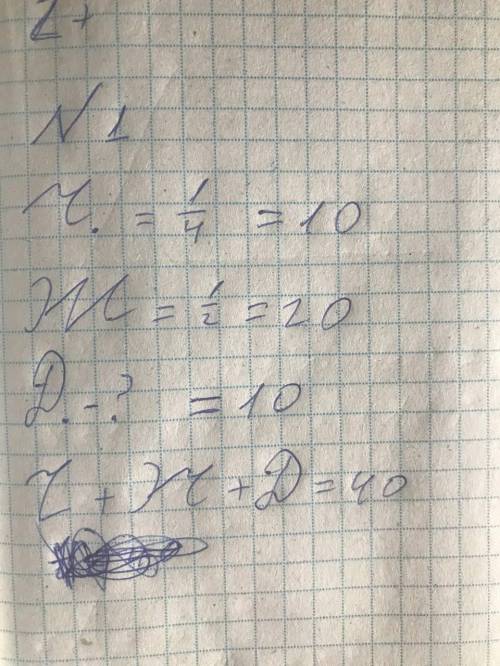 Z +
N 1
Ч. = 1/4 = 10
Ж = 1/2 = 20
Д. - ? = 10
Ч + Ж + Д = 40